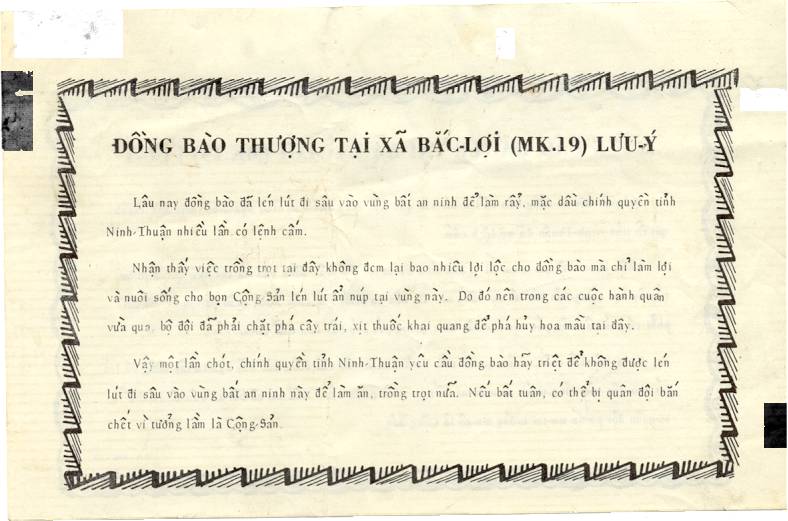 ĐỒNG BÀO THƯỢNG TẠI XÃ BẮC-LỢI (MK.19) LƯU-Ý
Lâu nay đồng bào đã lén lút đi sâu vào vùng bất an ninh để làm rẫy, mặc dầu chính quyền tỉnh
Ninh-Thuận nhiều lần có lệnh cấm.
Nhận thấy việc trồng trọt tại đây không đem lại bao nhiêu lợi lộc cho đồng bào mà chỉ làm lợi
và nuôi sống cho bọn Cộng-Sản lén lút ẩn núp tại vùng này. Do đó nên trong các cuộc hành quân
vừa qua, bộ đội đã phải chặt phá cây trái, xịt thuốc khai quang để phá hủy hoa mầu tại đây.
Vậy một lần chót, chính quyền tỉnh Ninh-Thuận yêu cầu đồng bào hãy triệt để không được lén
lút đi sâu vào vùng bất an ninh này để làm ăn, trồng trọt nữa. Nếu bất tuân, có thể bị quân đội bắn
chết vì tưởng lầm là Cộng-Sản.